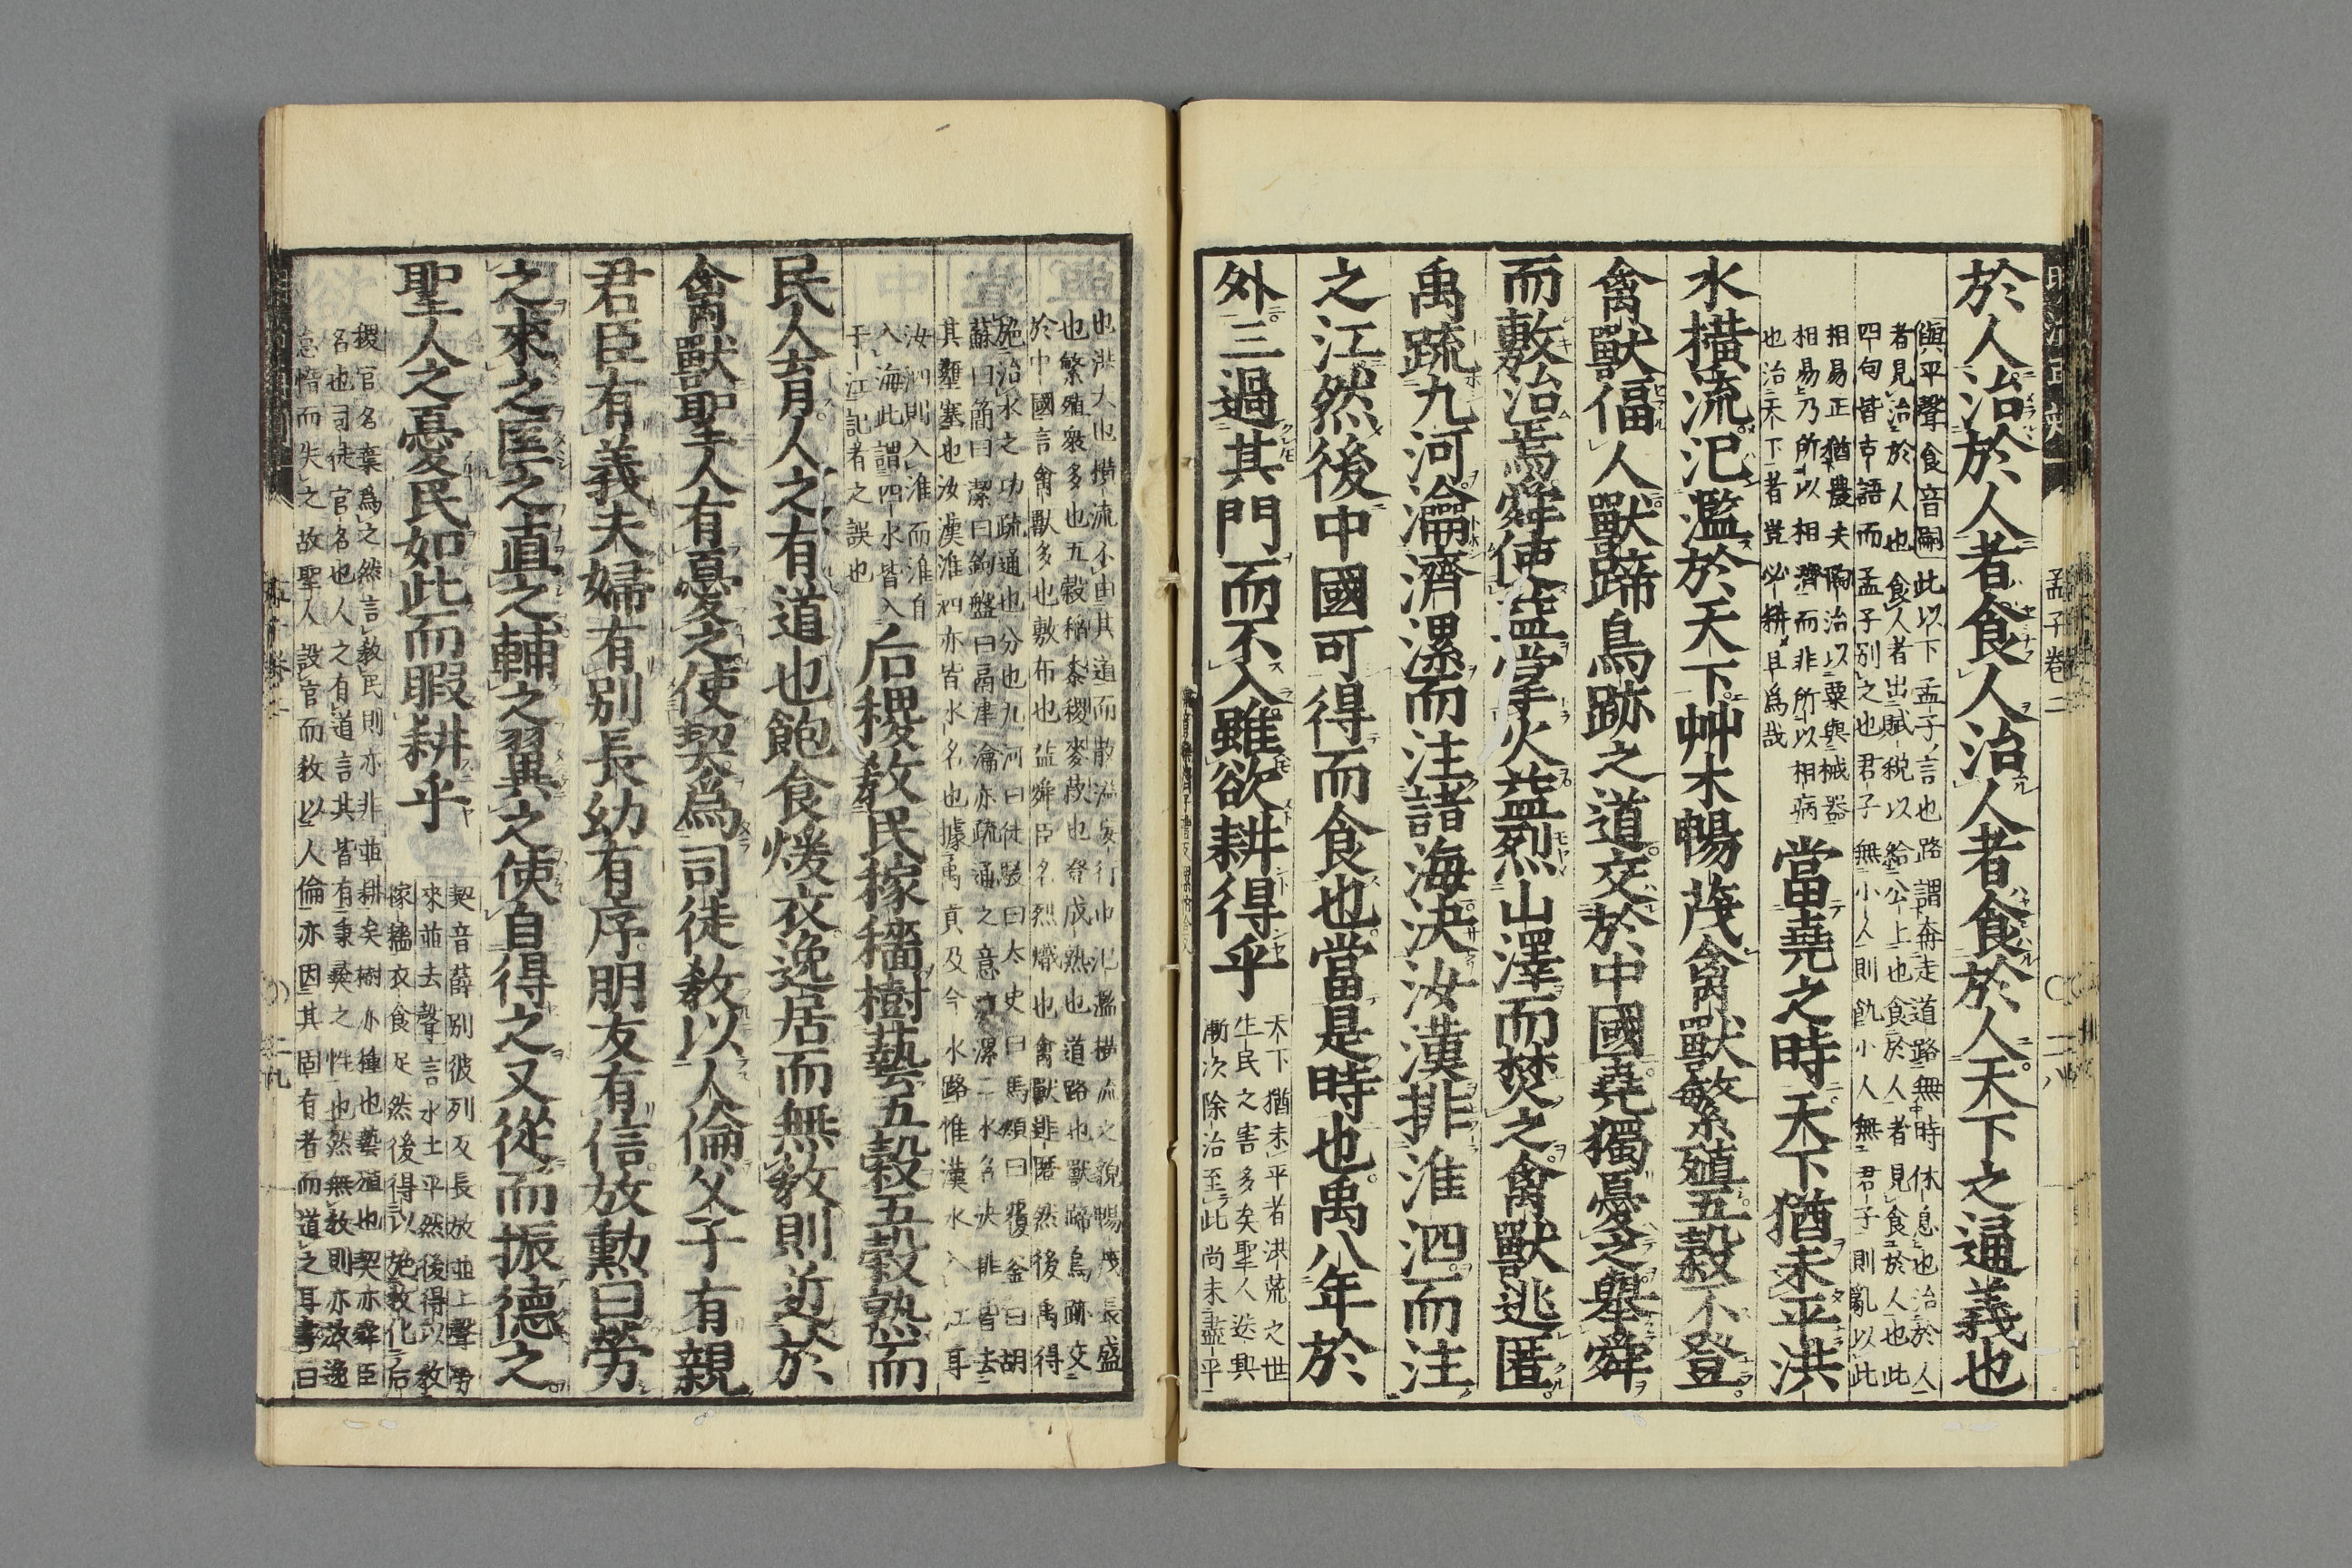 於人治於人者食人治人者食於人天下之通義也
與平聲食音嗣此以下孟子言也路謂奔走道路無時休息也治於人
者見治於人也食人者出賦税以給公上也食於人者見食於人也此
四句皆古語而孟子引之也君子無小人則飢小人無君子則亂以此
相易正猶農夫陶冶以粟與械器
相易乃所以相濟而非所以相病
也治天下者豈必耕且爲哉
當堯之時天下猶未平洪
水橫流氾濫於天下艸木暢茂禽獸繁殖五穀不登
禽獸偪人獸蹄鳥跡之道交於中國堯獨憂之舉舜
而敷治焉舜使益掌火益烈山澤而焚之禽獸逃匿
禹疏九河瀹濟漯而注諸海決汝漢排淮泗而注
之江然後中國可得而食也當是時也禹八年於
外三過其門而不入雖欲耕得乎
天下猶未平者洪荒之世
生民之害多矣聖人迭興
漸次除治至此尚未盡平
孟子卷二
二八
也洪大也橫流不由其道而散溢妄行也氾濫橫流之貌暢茂長盛
也繁殖衆多也五穀稻黍稷麥菽也登成熟也道路也獸蹄鳥跡交
於中國言禽獸多也敷布也益舜臣名烈熾也禽獸逃匿然後禹得
施治水之功疏通也分也九河曰徒駭曰太史曰馬頰曰覆釜曰胡
蘇曰簡曰潔曰鉤盤曰鬲津瀹亦疏通之意濟漯二水名決排皆去
其壅塞也汝漢淮泗亦皆水名也據禹貢及今水路惟漢水入江耳
汝泗則入淮而淮自
入海此謂四水皆入
于江記者之誤也
后稷教民稼穡樹藝五穀五穀熟而
民人育人之有道也飽食煖衣逸居而無教則近於
禽獸聖人有憂之使契爲司徒教以人倫父子有親
君臣有義夫婦有別長幼有序朋友有信放勳曰勞
之來之匡之直之輔之翼之使自得之又從而振德之
聖人之憂民如此而暇耕乎
契音薛別彼列反長放並上聲勞
來並去聲言水土平然後得以教
稼穡衣食足然後得以施教化后
稷官名棄爲之然言教民則亦非並耕矣樹亦種也藝殖也契亦舜臣
名也司徒官名也人之有道言其皆有秉彝之性也然無教則亦放逸
怠惰而失之故聖人設官而教以人倫亦因其固有者而道之耳書曰
二九